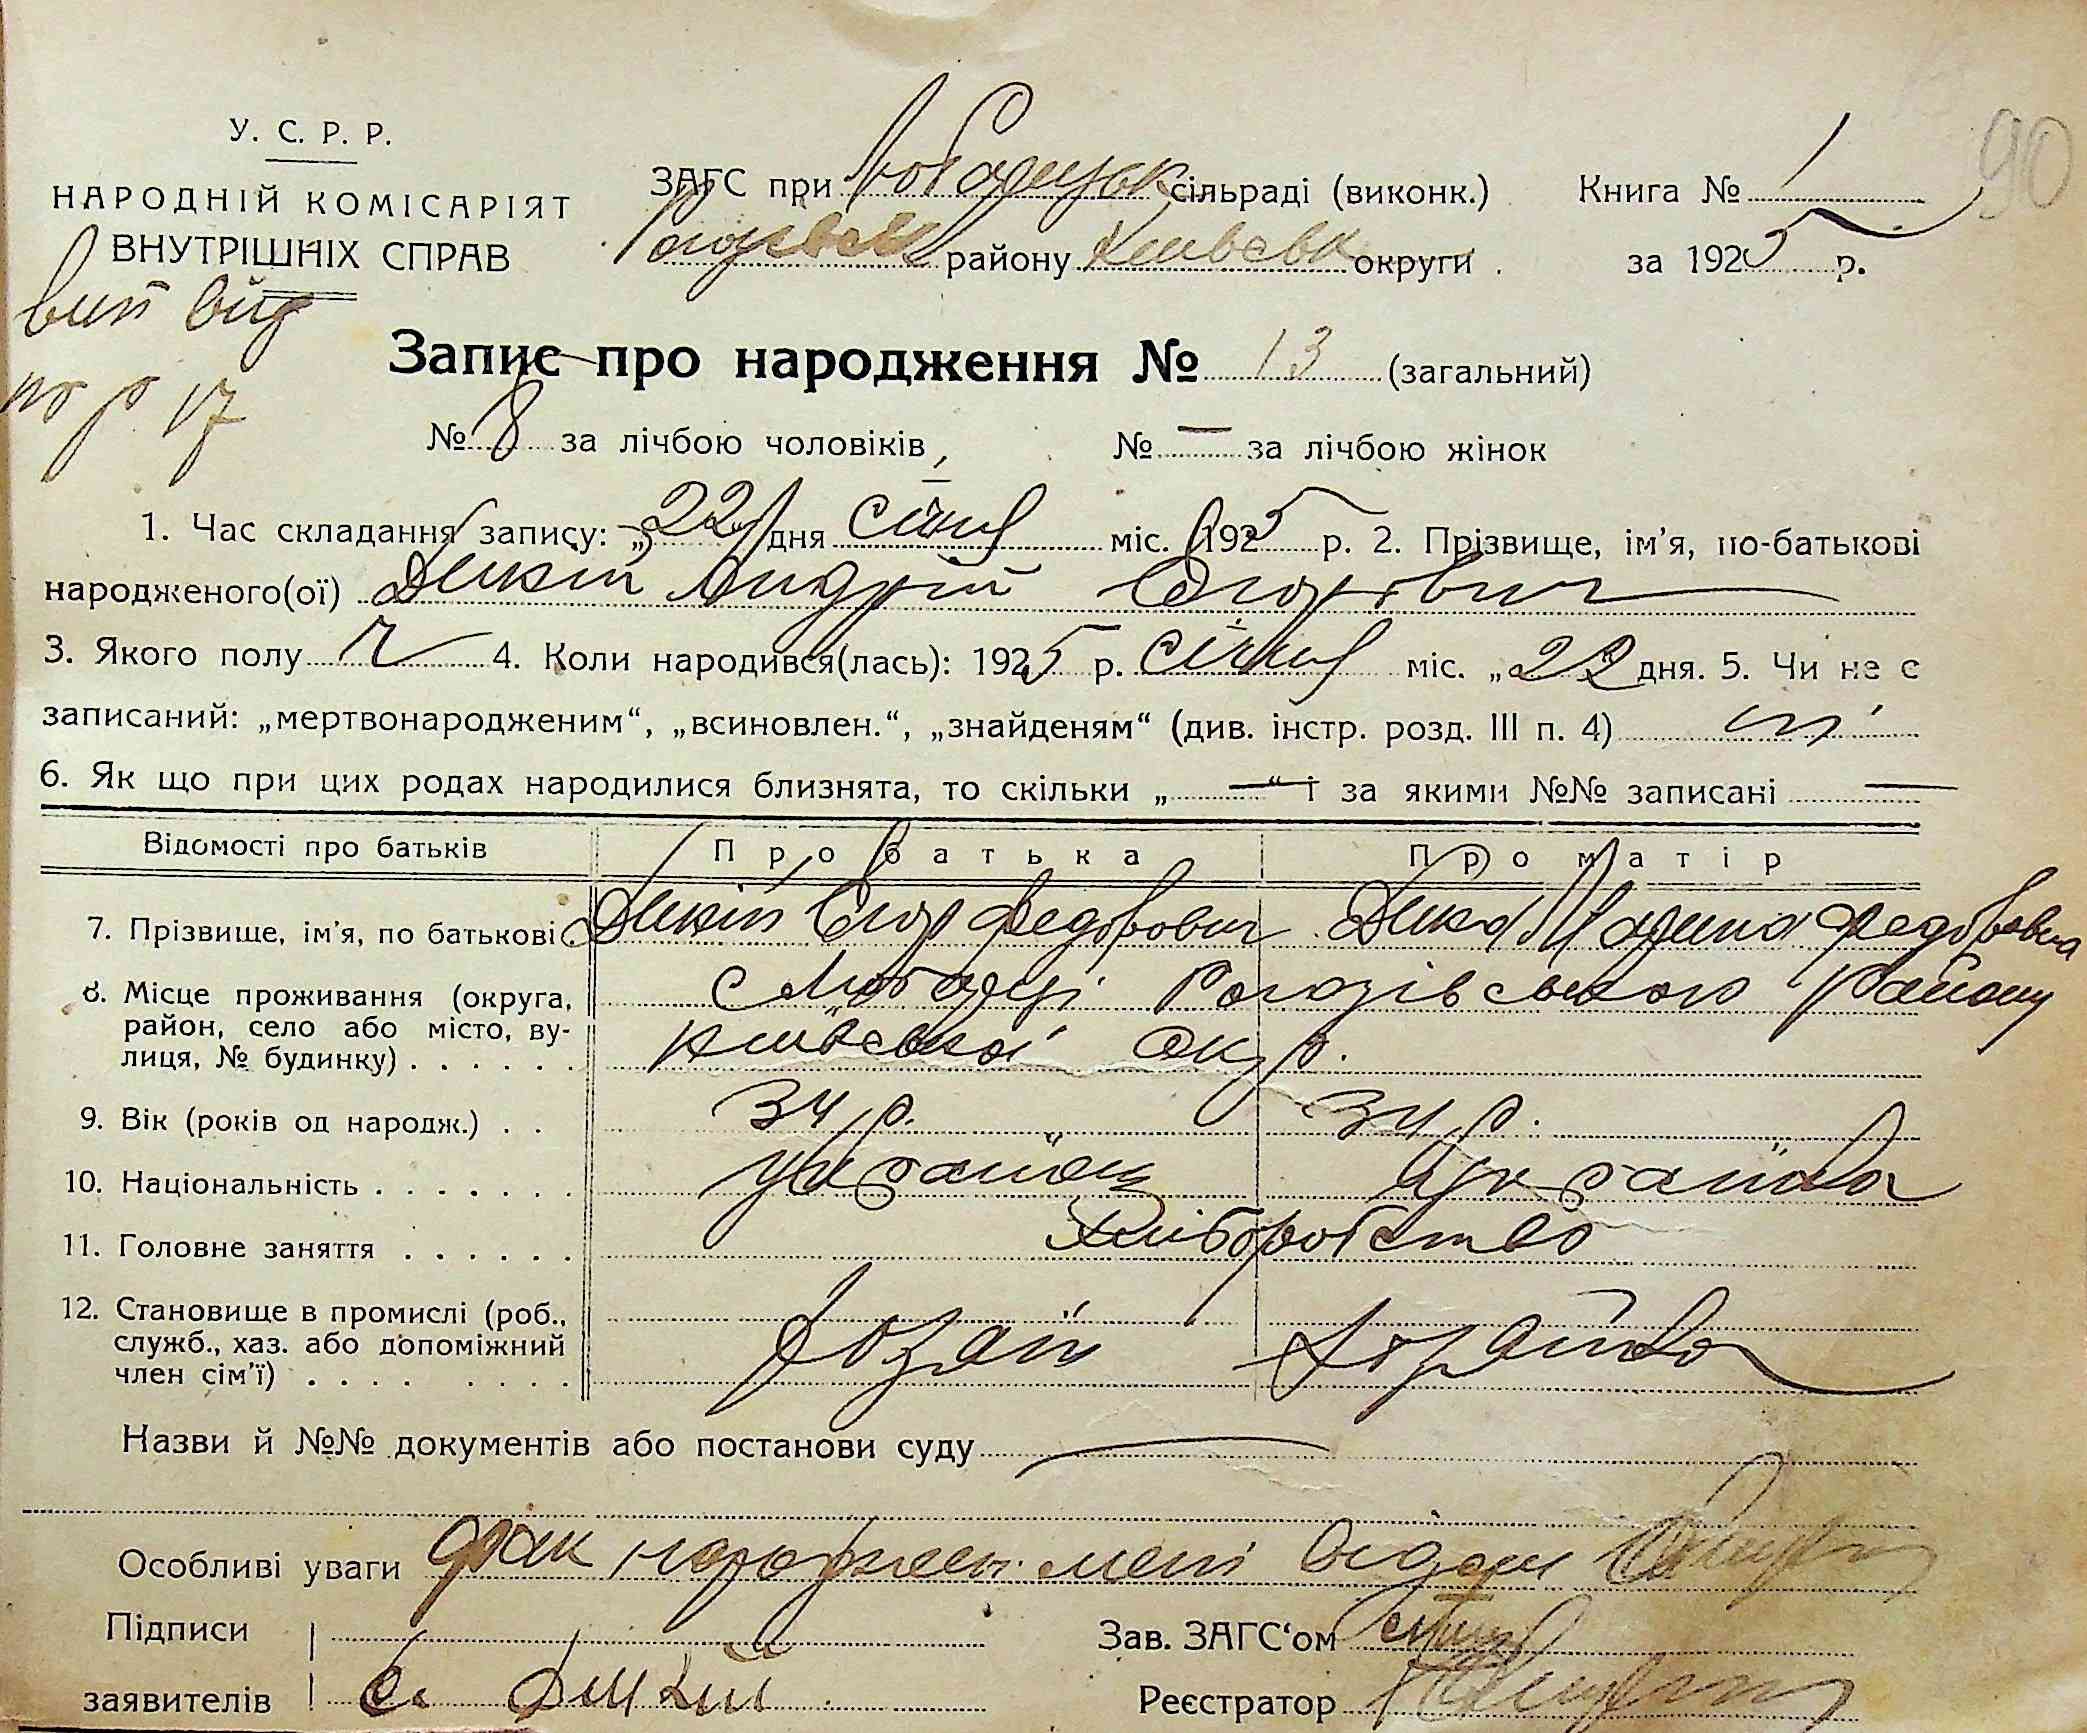 90
У. С. Р. Р.
НАРОДНІЙ КОМІСАРІЯТ
ВНУТРІШНІХ СПРАВ
ЗАГС при Любарецьк сільраді (виконк.)
Книга № 1
Рогозівськ району Київськ округи
за 1925 р.
вип від
по р 17
Запис про народження № 13 (загальний)
№ 8 за лічбою чоловіків, № — за лічбою жінок
1. Час складання запису: „22" дня січня міс. 1925 р. 2. Прізвище, ім'я, по-батькові
народженого(ої) Дикій Андрій Єгорович
3. Якого полу ч 4. Коли народився(лась): 1925 р. січня міс. „22 дня. 5. Чи не є
записаний: „мертвонародженим“, „всиновлен.“, „знайденям“ (див. інстр. розд. III п. 4) ні
6. Як що при цих родах народилися близнята, то скільки „ — “ і за якими №№ записані —
Відомості про батьків Про батька Про матір
7. Прізвище, ім'я, по батькові . Дикій Єгор Федорович Дика Марина Федоровна
8. Місце проживання (округа, с Любарці Рогозівського району
район, село або місто, ву-
лиця, № будинку) . . . . . . Київської окр.
9. Вік (років од народж.) . . 34 р. 34 р.
10. Національність . . . . . . . українец українка
11. Головне заняття . . . . . . Хліборобство
12. Становище в промислі (роб.,
служб., хаз. або допоміжний хозяїн хозяйка
член сім'ї) . . . . . . . .
Назви й №№ документів або постанови суду —
Особливі уваги факт народжен. мені відом
Підписи
Зав. ЗАГС‘ом
заявителів Є. Дикий
Реєстратор